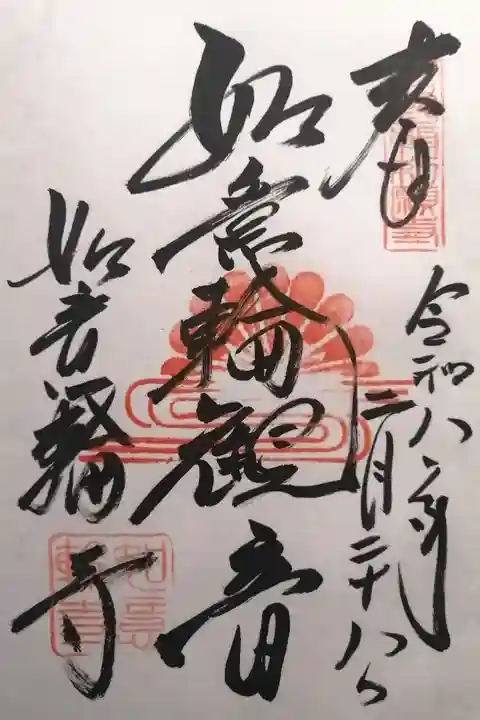 奉
令和八年
二月二十八日
如意輪観音
如意輪寺